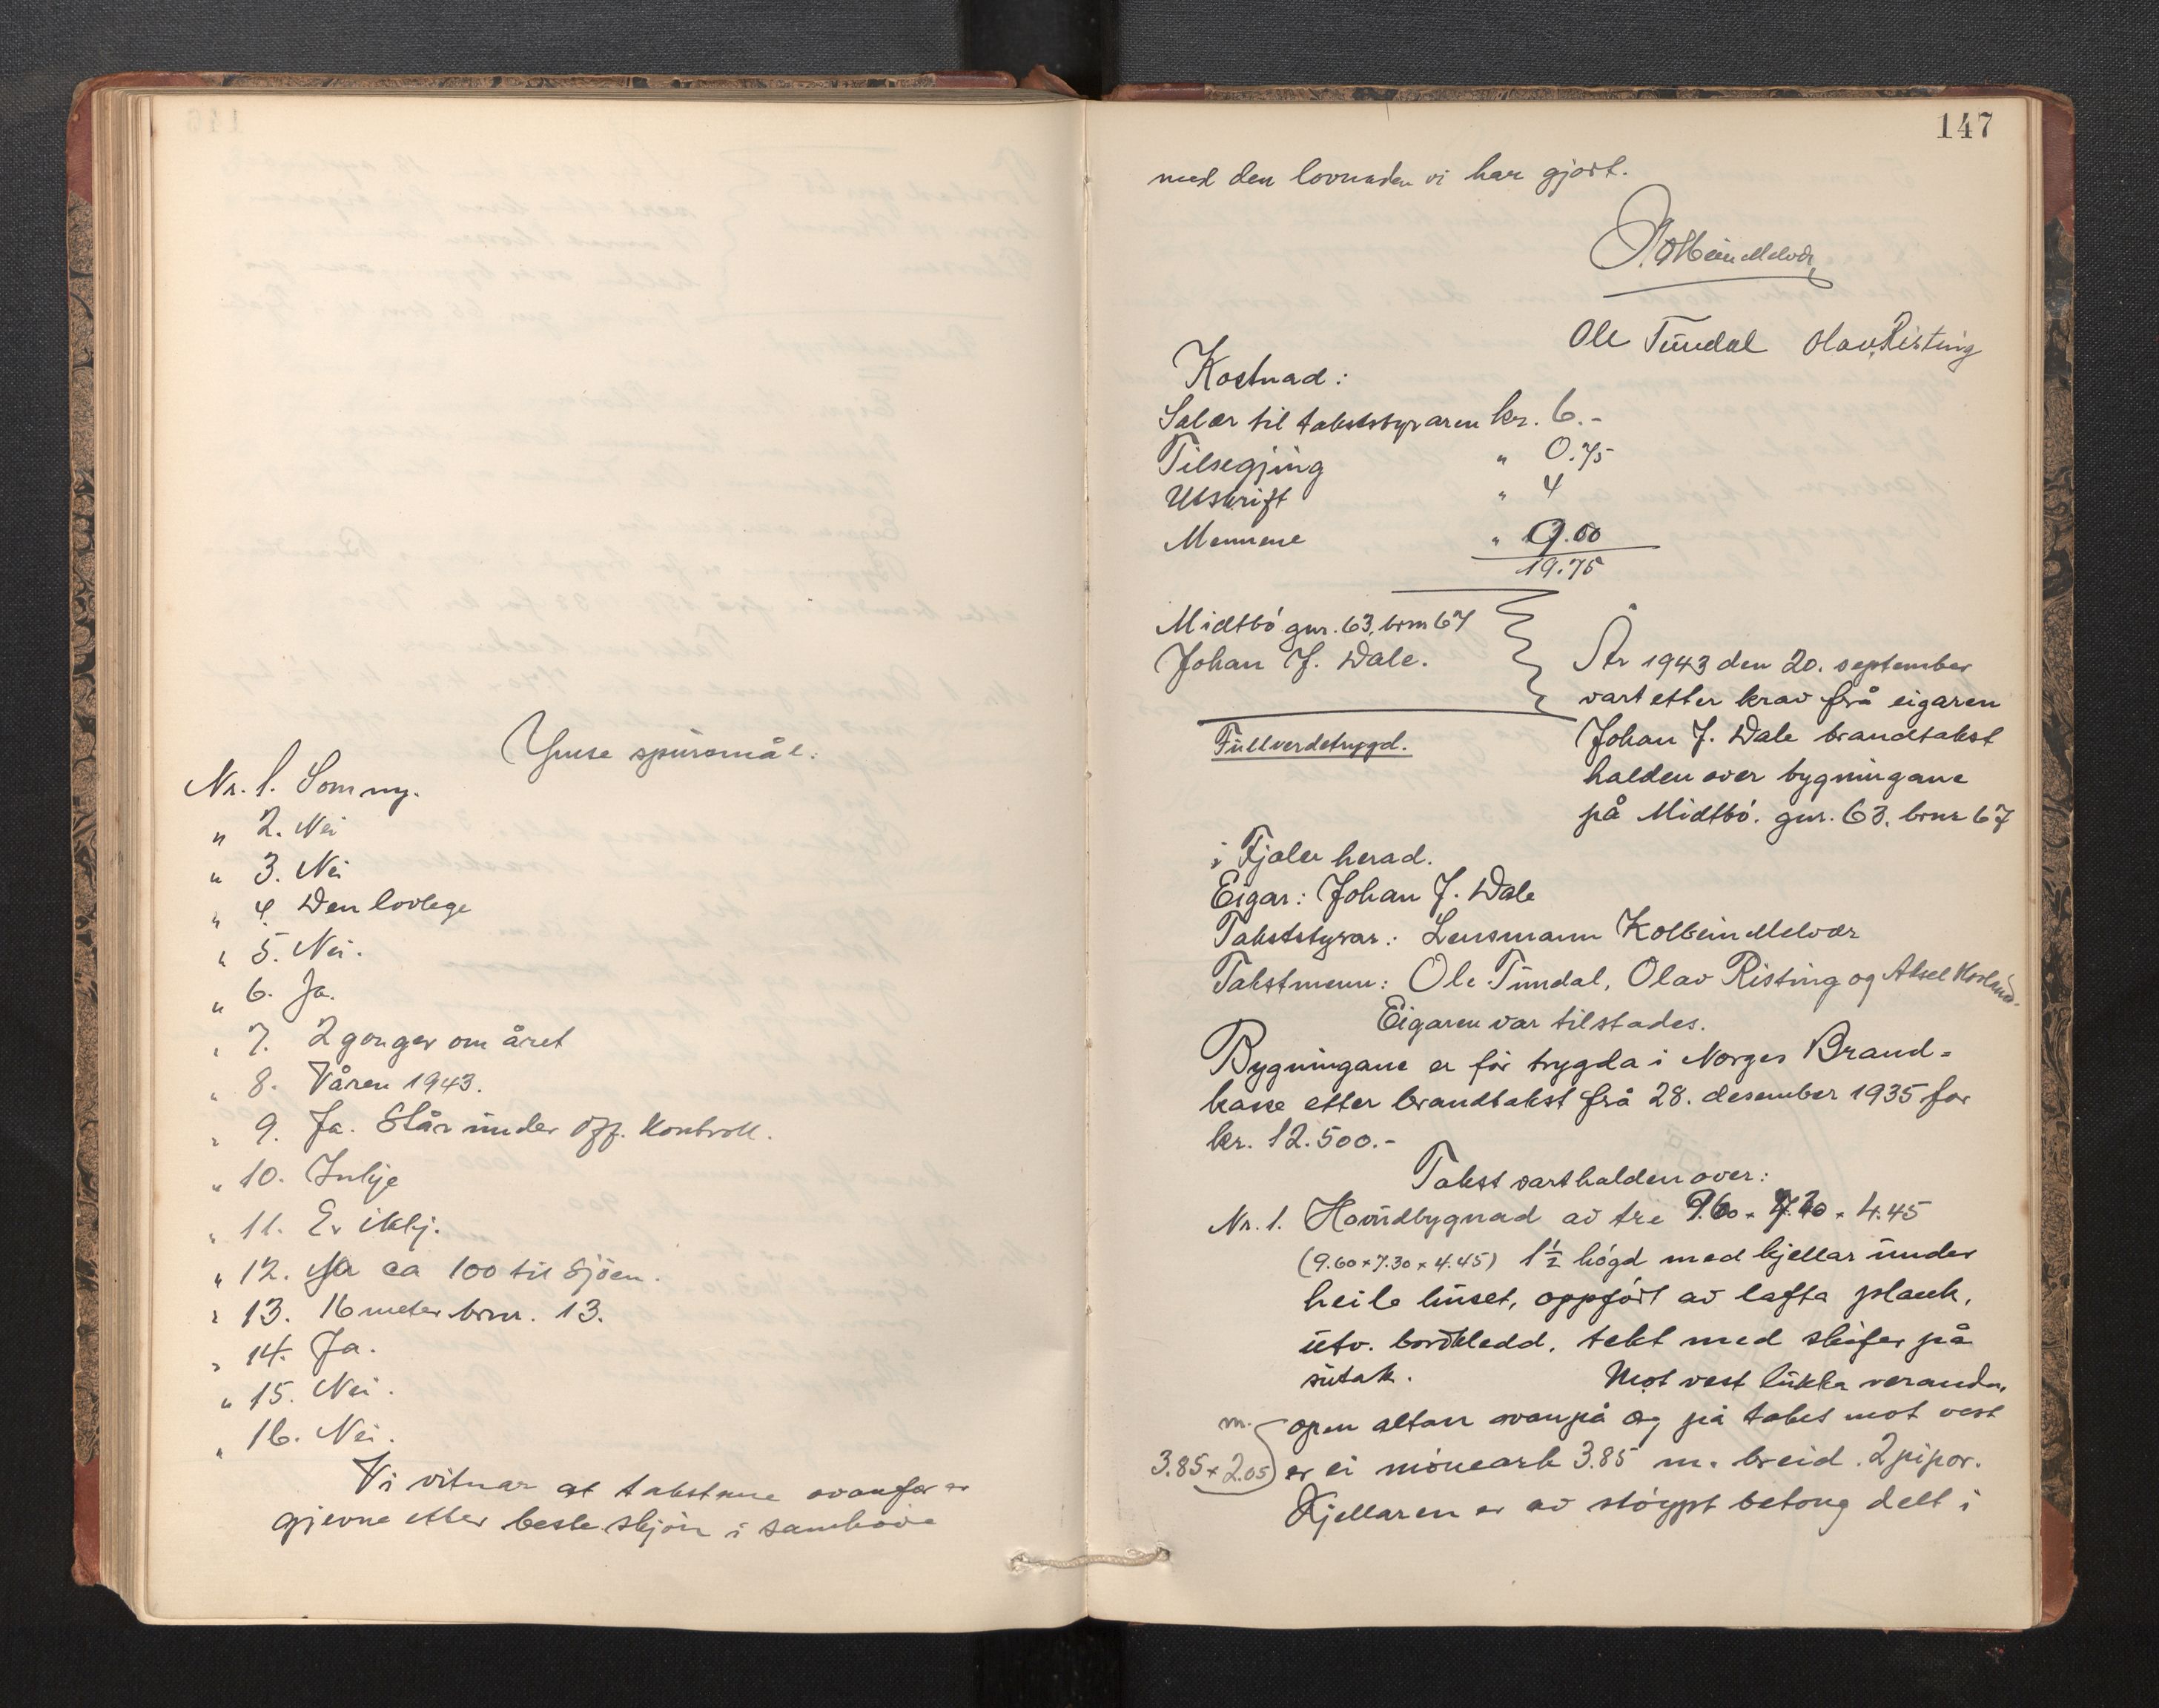 Ymse spursmål:
Nr. 1. Som ny.
" 2. Nei
" 3. Nei
" 4. Den lovlege
" 5. Nei.
" 6. Ja.
" 7. 2 gonger om året
" 8. Våren 1943.
" 9. Ja. Står under off. kontroll.
" 10. Inkje
" 11. Er ikkj.
" 12. Ja ca 100 til sjöen.
" 13. 16 meter brnr. 13.
" 14. Ja.
" 15. Nei.
" 16. Nei.
Vi vitnar at takstane ovanfor er
gjevne etter beste skjön i samhøve
147
med den lovnaden vi har gjort.
Kolbein Melvær
Ole Tundal Olav Risting
Kostnad:
Salær til takststyraren kr. 6.-
Tilsegjing " 0.75
Utskrift " 4
Mennene " 9.00
19.75
Midtbö gnr. 63, brnr 67
Johan J. Dale.
Fullverdetrygd.
År 1943 den 20. september
vart etter krav frå eigaren
Johan J. Dale brandtakst
halden over bygningane
på Midtbö. gnr. 63. brnr 67
i Fjaler herad.
Eigar: Johan J. Dale
Takststyrar: Lensmann Kolbein Melvær
Takstmenn: Ole Tundal, Olav Risting og Aksel
Eigaren var tilstades.
Bygningane er för trygda i Norges Brand-
kasse etter brandtakst frå 28. desember 1935 for
kr. 12.500.-
Takst vart halden over:
Nr. 1. Hovudbygnad av tre 9.60 x 7.30 x 4.45
(9.60 x 7.30 x 4.45) 1½ högd med kjellar under
heile huset, oppfört av lafta plank,
utv. bordkledd, tekt med skifer på
sutak. Mot vest lukka veranda,
m.
open altan ovanpå og på taket mot vest
3.85 x 2.05 er ei möneark 3.85 m. breid. 2 pipor.
Kjellaren er av stöypt betong delt i